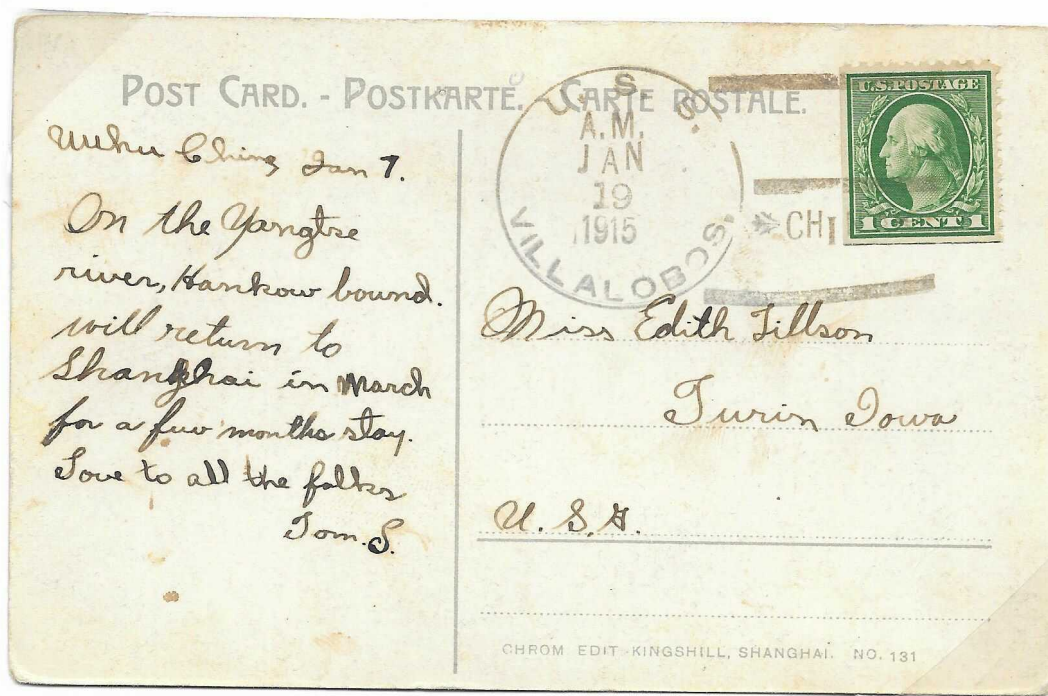 POST CARD. - POSTKARTE. CARTE POSTALE.
U. S. S.
A.M.
JAN
19
1915
VILLALOBOS.
CHI
U.S.POSTAGE
1 CENT 1
Wuhu China Jan 7.
On the Yangtse
river, Hankow bound.
will return to
Shanghai in March
for a few months stay.
Love to all the folks
Tom. S.
Miss Edith Tillson
Turin Iowa
U. S. A.
CHROM EDIT KINGSHILL, SHANGHAI. NO. 131